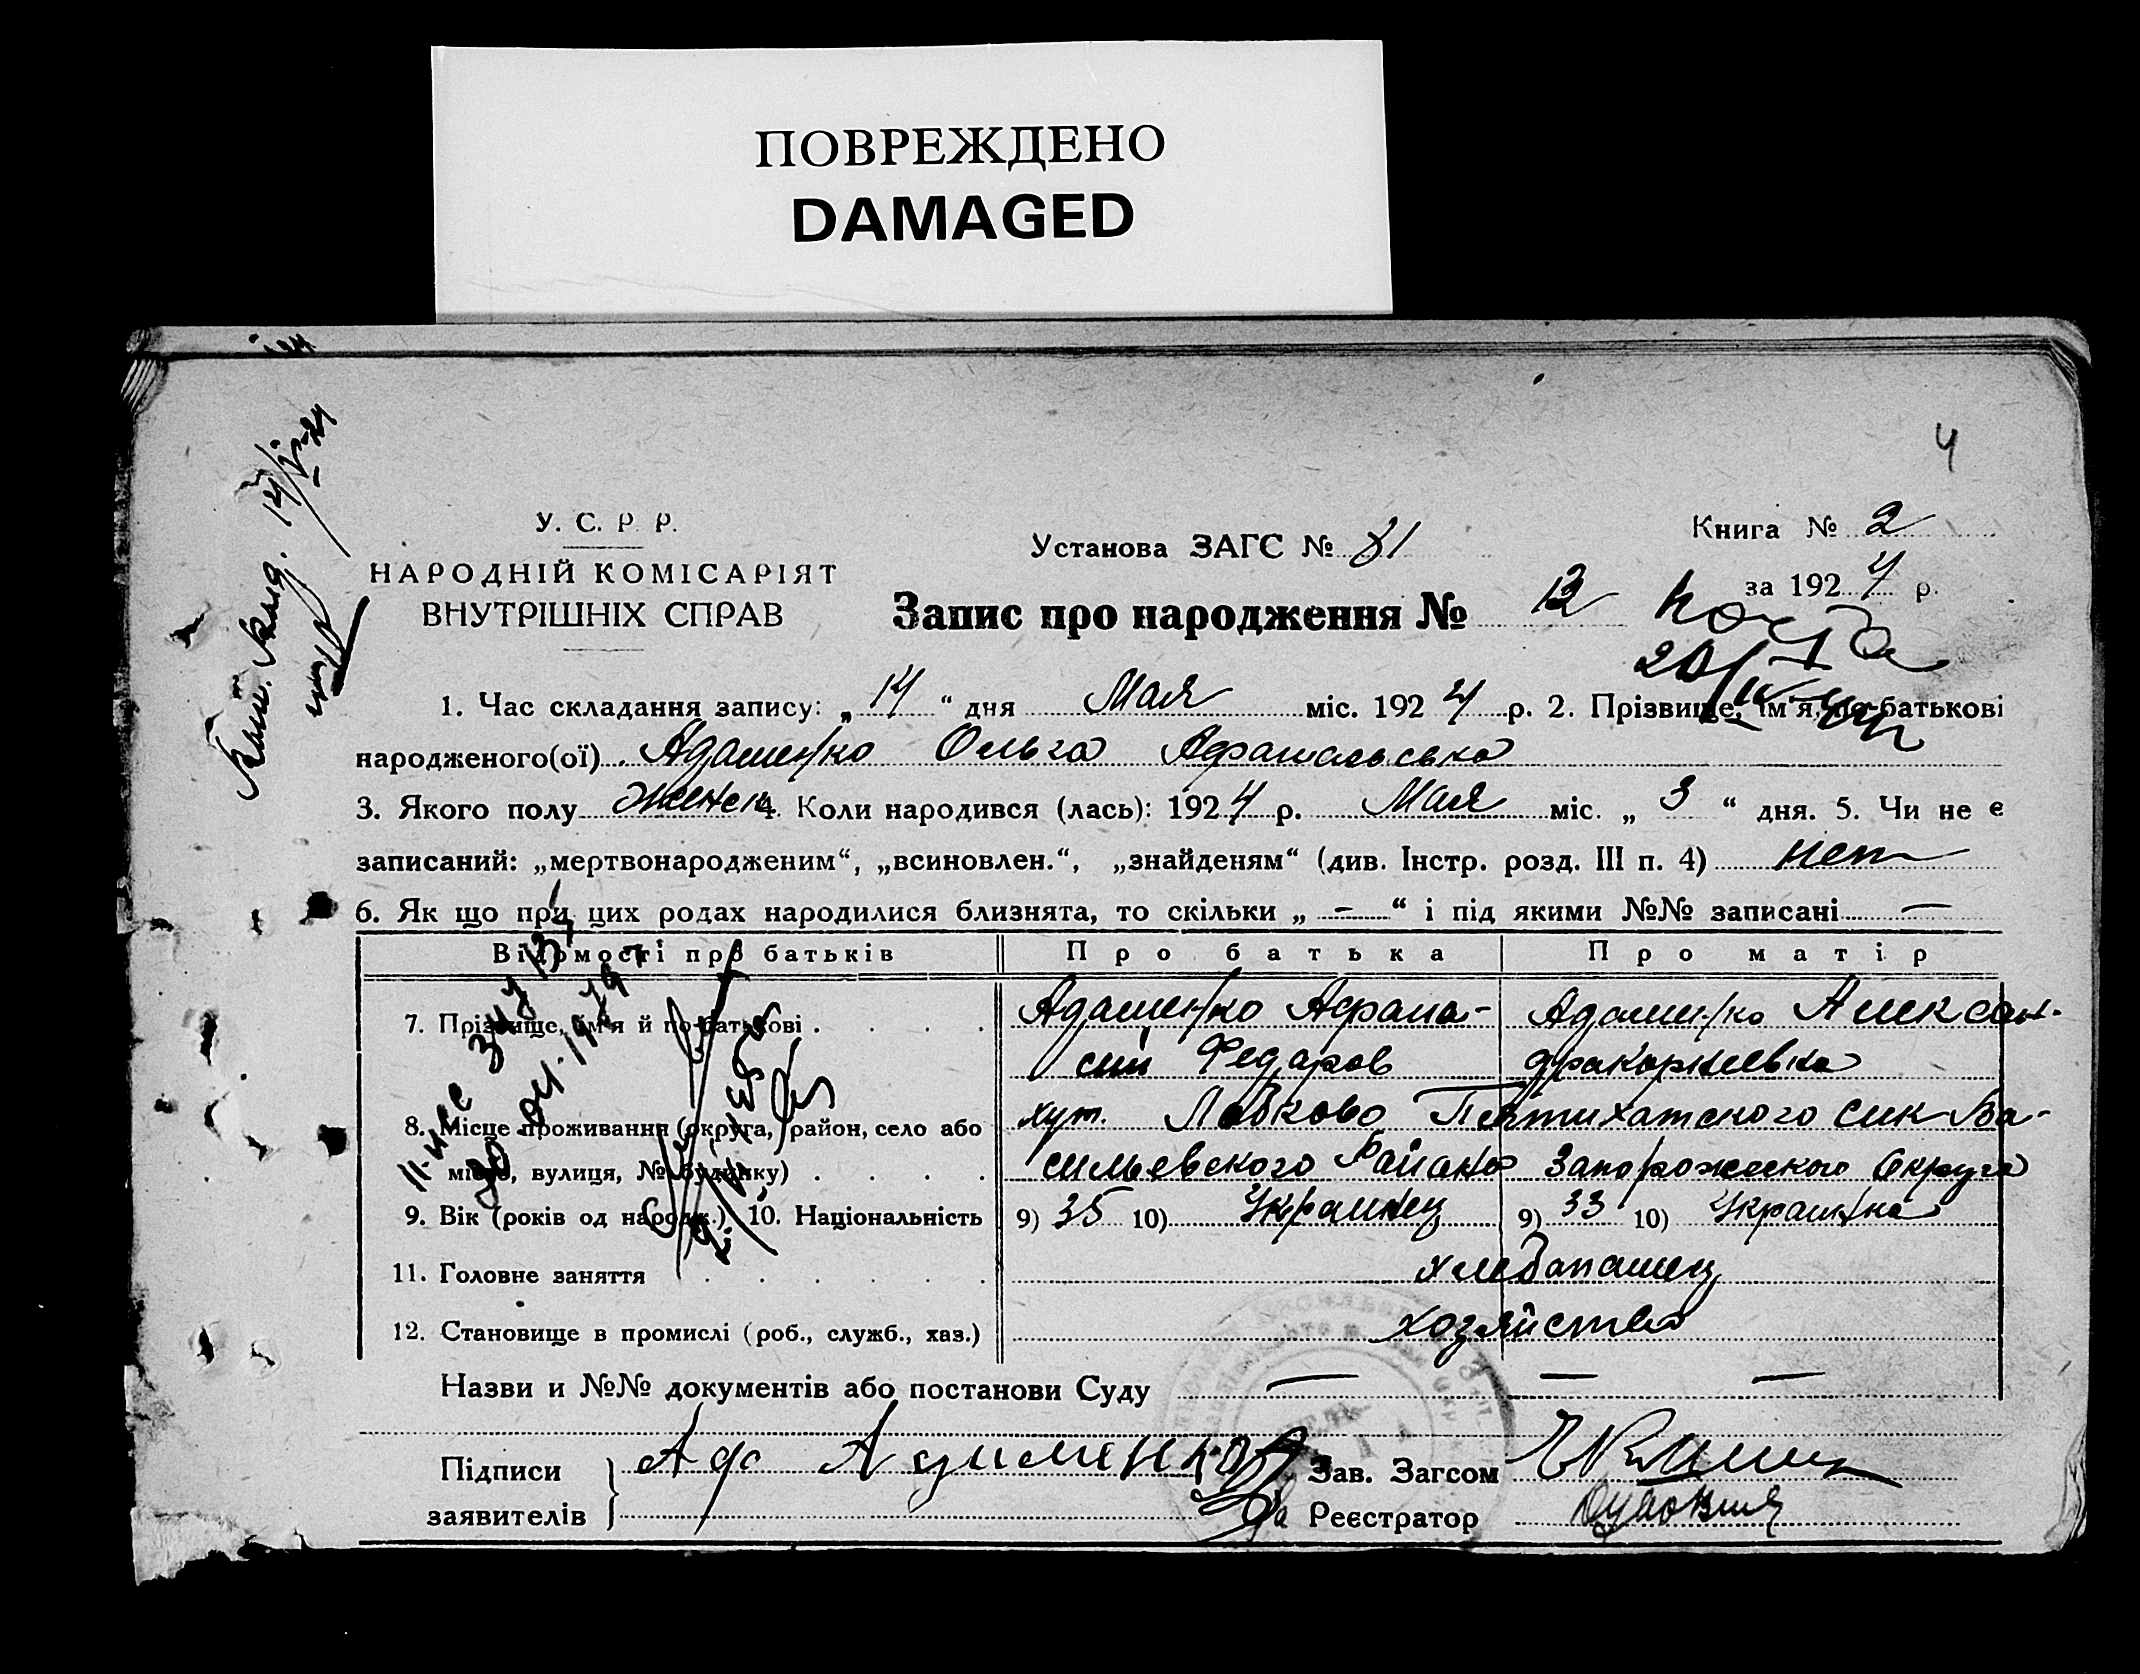 ПОВРЕЖДЕНО
DAMAGED
4
У. С. Р. Р.
НАРОДНІЙ КОМІСАРІЯТ
ВНУТРІШНІХ СПРАВ
Установа ЗАГС № 31
Книга № 2
за 1924 р.
Запис про народження № 12
1. Час складання запису: „14“ дня Мая міс. 1924 р. 2. Прізвище, ім'я, по-батькові
народженого(ої) Адаменко Ольга
3. Якого полу женск 4. Коли народився (лась): 1924 р. Мая міс. „3“ дня. 5. Чи не є
записаний: „мертвонародженим“, „всиновлен.“, „знайденям“ (див. Інстр. розд. III п. 4) нет
6. Як що при цих родах народилися близнята, то скільки „-“ і під якими №№ записані —
Відомості про батьків Про батька Про матір
7. Прізвище, ім'я й по-батькові . . . . Адаменко Афана- Адаменко Алексан-
сий Федаров
8. Місце проживання (округа, район, село або хут. Пятихатского Ва-
місто, вулиця, № будинку) . . . . сильевского Района Запорожского Округа
9. Вік (років од народж.) 10. Національність 9) 35 10) Украинец 9) 33 10) Украинка
11. Головне заняття . . . . . . хлебапашец
12. Становище в промислі (роб., служб., хаз.) хозяйство
Назви и №№ документів або постанови Суду — — —
Підписи
заявителів
Зав. Загсом
Реєстратор